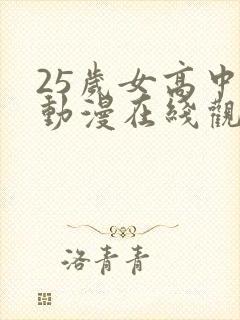 25歲女高中
動漫在綫觀
洛青青